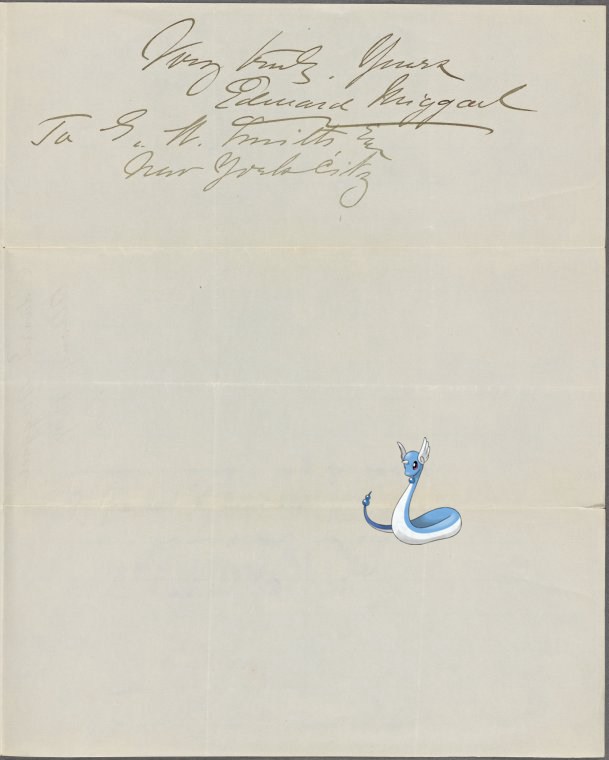 Very truly, Yours
Edward
To G. W. Smith, Esq
New York City